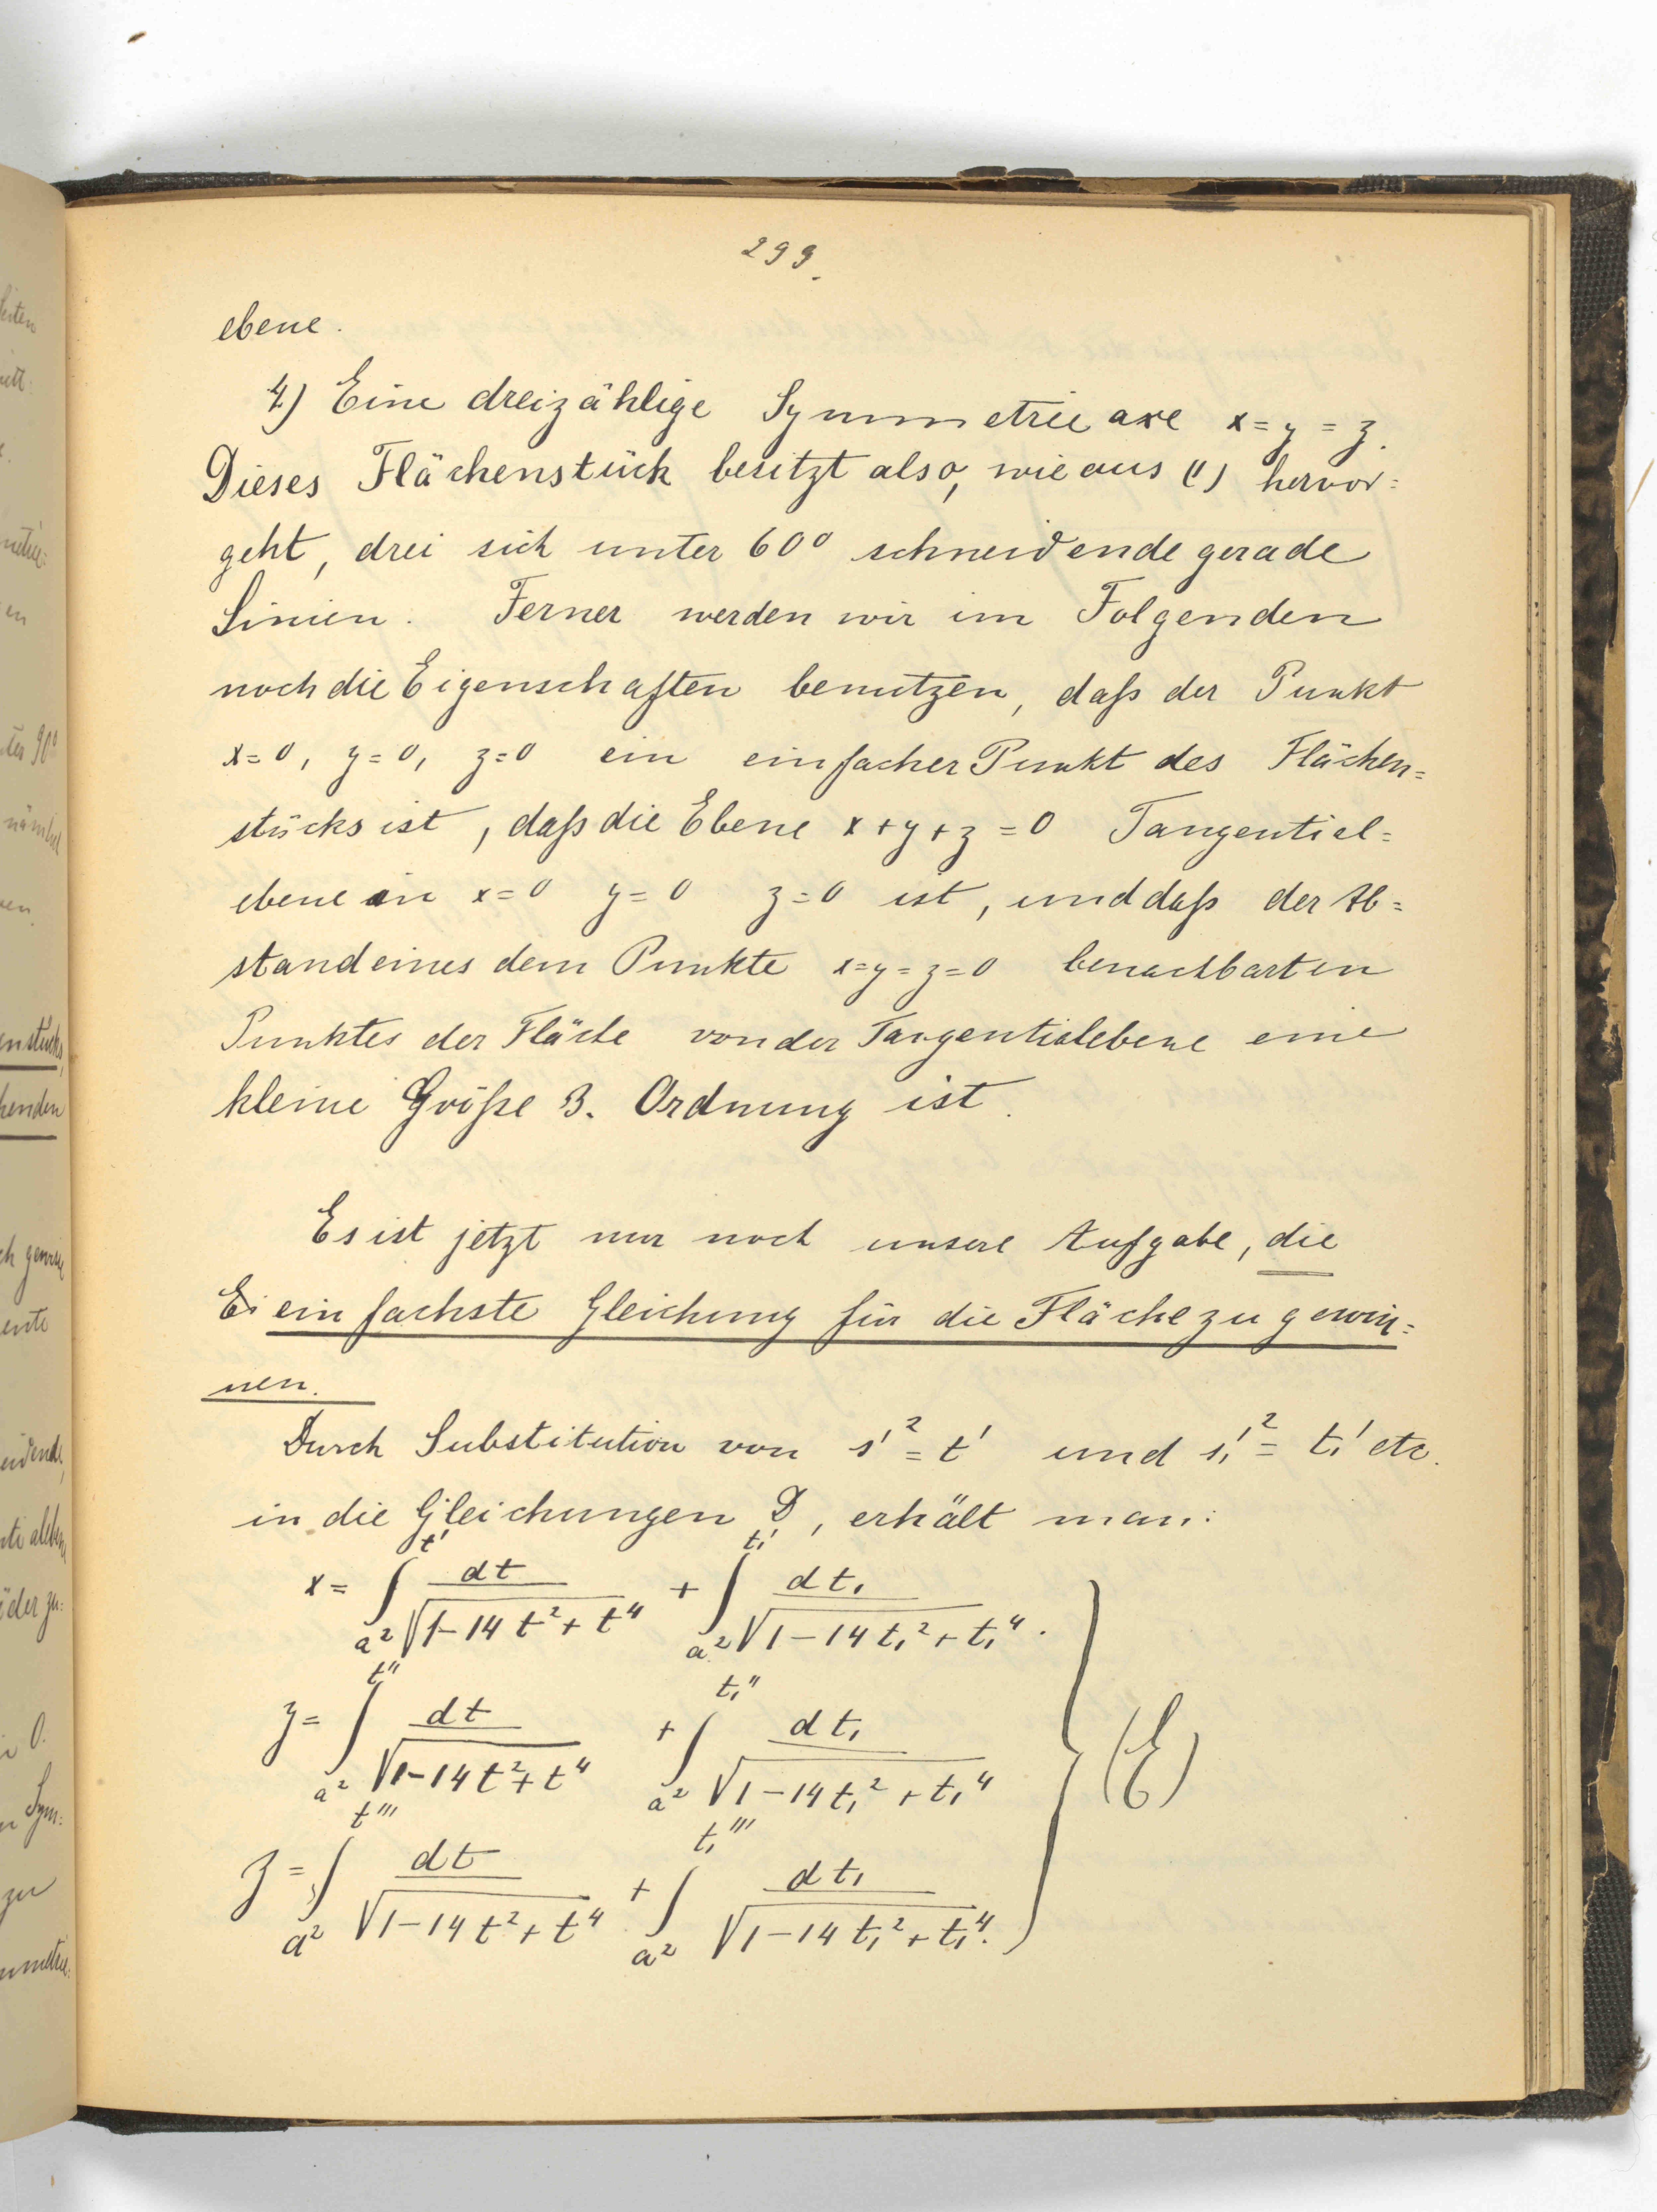 299.
ebene.
4) Eine dreizählige Symmetrieaxe x = y = z.
Dieses Flächenstück besitzt also, wie aus (1) hervor=
geht, drei sich unter 60° schneidende gerade
Linien. Ferner werden wir im Folgenden
noch die Eigenschaften benutzen, daß der Punkt
x=0, y=0, z=0 ein einfacher Punkt des Flächen=
stücks ist, daß die Ebene x+y+z=0 Tangential=
ebene in x=0 y=0 z=0 ist, und daß der Ab=
stand eines dem Punkte x=y=z=0 benachbarten
Punktes der Fläche von der Tangentialebene eine
kleine Größe 3. Ordnung ist.
Es ist jetzt nur noch unsere Aufgabe, die
Ei einfachste Gleichung für die Fläche zu gewin=
nen.
Durch Substitution von s'² = t' und s₁'² = t₁' etc.
in die Gleichungen D, erhält man:
x = ∫_{a²}^{t'} dt / √(1-14t²+t⁴) + ∫_{a²}^{t₁'} dt₁ / √(1-14t₁²+t₁⁴).
y = ∫_{a²}^{t''} dt / √(1-14t²+t⁴) + ∫_{a²}^{t₁''} dt₁ / √(1-14t₁²+t₁⁴) } (E)
z = ∫_{a²}^{t'''} dt / √(1-14t²+t⁴) + ∫_{a²}^{t₁'''} dt₁ / √(1-14t₁²+t₁⁴).